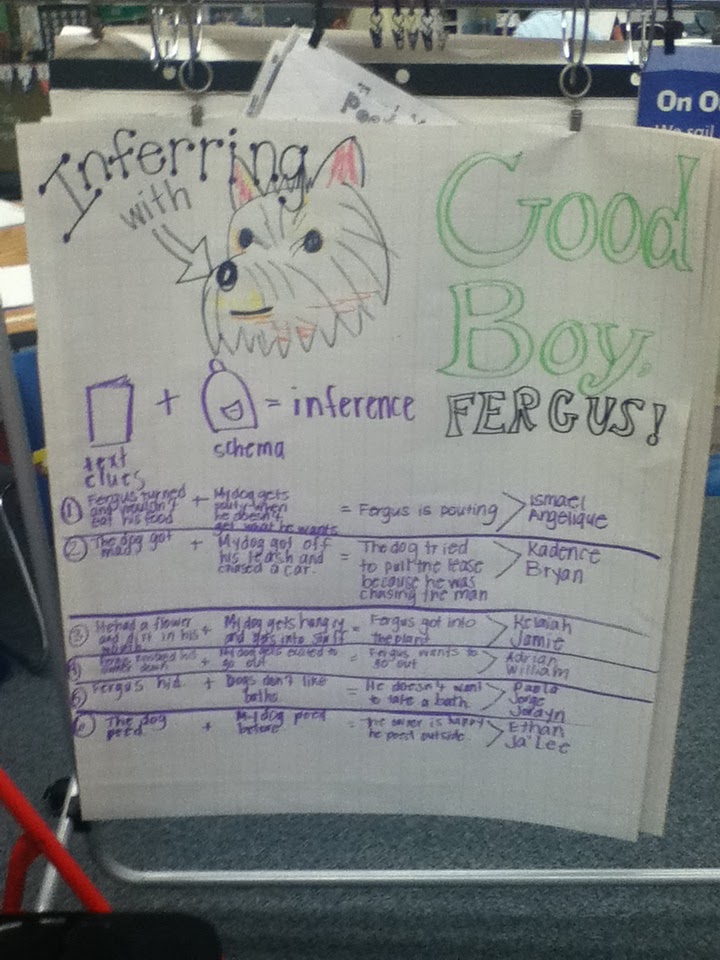 On O
We sail
Inferring
with
Good
Boy,
FERGUS!
+ = inference
text
clues
schema
① Fergus turned
and wouldn't
eat his food
+ My dog gets
pouty when
he doesn't
get what he wants
= Fergus is pouting
Ismael
Angelique
② The dog got
mad
+ My dog got off
his leash and
chased a car.
= The dog tried
to pull the lease
because he was
chasing the man
Kadence
Bryan
③ He had a flower
and dirt in his
mouth
+ My dog gets hungry
and gets into stuff
= Fergus got into
the plant
Kelaiah
Jamie
④ Fergus knocked his
owner down
+ My dog gets excited to
go out
= Fergus wants to
go out
Adrian
William
⑤ Fergus hid
+ Dogs don't like
baths
= He doesn't want
to take a bath
Paola
Jorge
Jordyn
⑥ The dog
peed
+ My dog peed
before
= The owner is happy
he peed outside.
Ethan
Ja'Lee